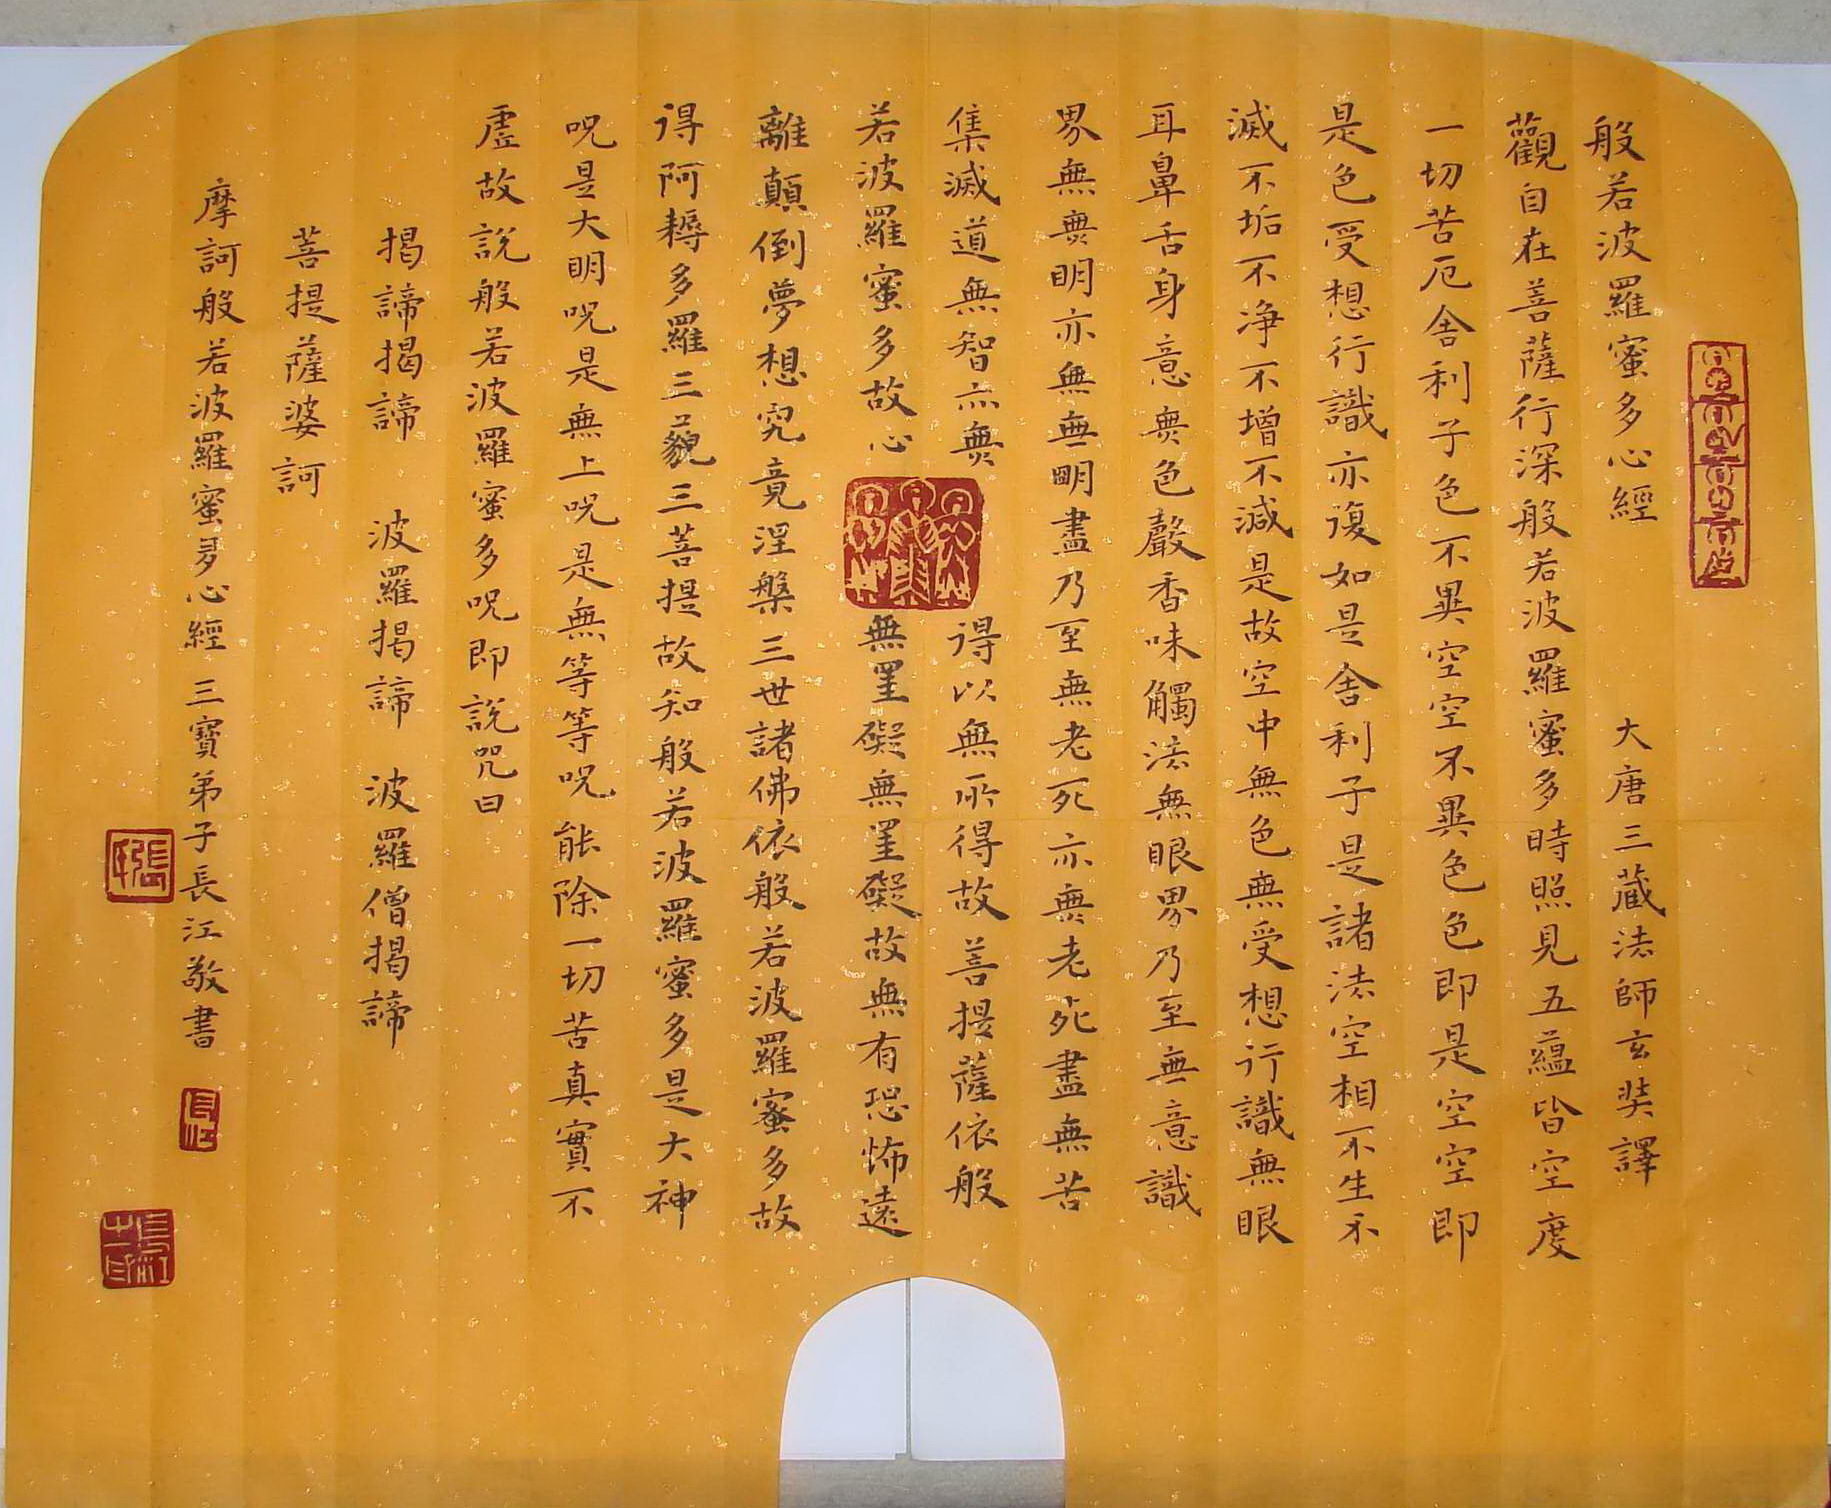 般若波羅蜜多心經 大唐三藏法師玄奘譯
觀自在菩薩行深般若波羅蜜多時照見五蘊皆空度
一切苦厄舍利子色不異空空不異色色即是空空即
是色受想行識亦復如是舍利子是諸法空相不生不
滅不垢不淨不增不減是故空中無色無受想行識無眼
耳鼻舌身意無色聲香味觸法無眼界乃至無意識
界無無明亦無無明盡乃至無老死亦無老死盡無苦
集滅道無智亦無得以無所得故菩提薩依般
若波羅蜜多故心無罣礙無罣礙故無有恐怖遠
離顛倒夢想究竟涅槃三世諸佛依般若波羅蜜多故
得阿耨多羅三藐三菩提故知般若波羅蜜多是大神
呪是大明呪是無上呪是無等等呪能除一切苦真實不
虛故說般若波羅蜜多呪即說咒曰
揭諦揭諦 波羅揭諦 波羅僧揭諦
菩提薩婆訶
摩訶般若波羅蜜多心經 三寶弟子長江敬書
張
長江